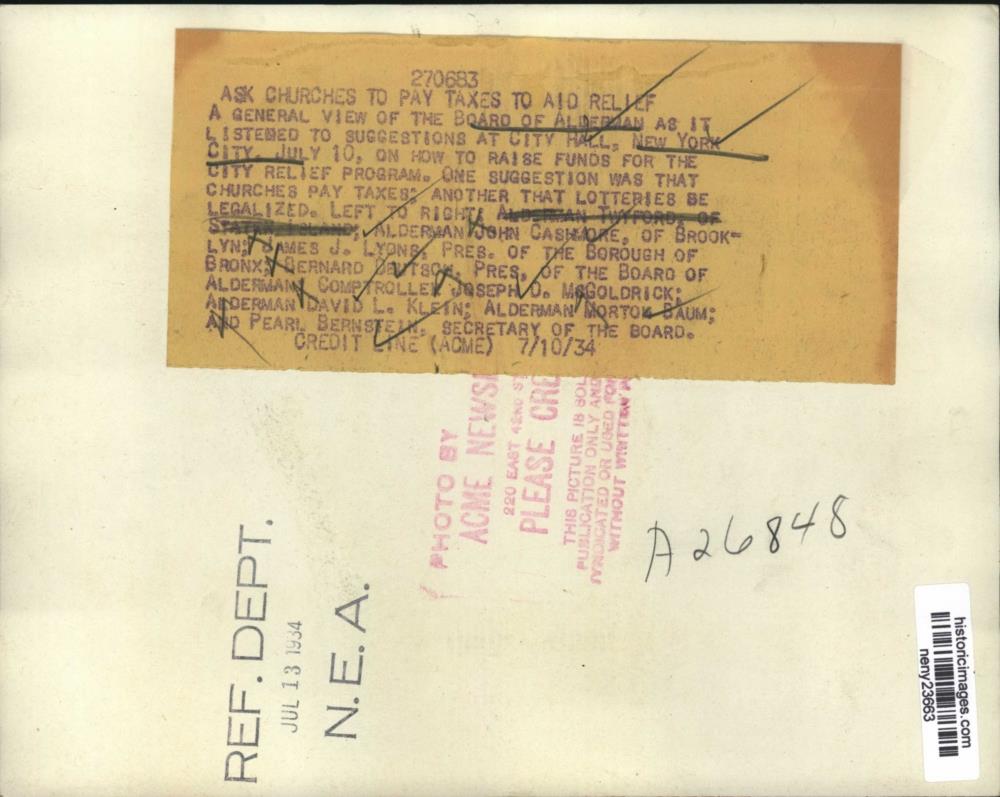 270683
ASK CHURCHES TO PAY TAXES TO AID RELIEF
A GENERAL VIEW OF THE BOARD OF ALDERMAN AS IT
LISTENED TO SUGGESTIONS AT CITY HALL, NEW YORK
CITY, JULY 10, ON HOW TO RAISE FUNDS FOR THE
CITY RELIEF PROGRAM. ONE SUGGESTION WAS THAT
CHURCHES PAY TAXES; ANOTHER THAT LOTTERIES BE
LEGALIZED. LEFT TO RIGHT: ALDERMAN TWYFORD, OF
STATEN ISLAND; ALDERMAN JOHN CASHMORE, OF BROOK-
LYN; JAMES J. LYONS, PRES. OF THE BOROUGH OF
BRONX; BERNARD DEUTSCH, PRES. OF THE BOARD OF
ALDERMAN; COMPTROLLER JOSEPH D. McGOLDRICK;
ALDERMAN DAVID L. KLEIN; ALDERMAN MORTON BAUM;
AND PEARL BERNSTEIN, SECRETARY OF THE BOARD.
CREDIT LINE (ACME) 7/10/34
PHOTO BY
ACME NEWS
220 EAST 42ND ST
PLEASE CRE
THIS PICTURE IS SOL
PUBLICATION ONLY AND
SYNDICATED OR USED FOR
WITHOUT WRITTEN
A26848
REF. DEPT.
JUL 13 1934
N.E.A.
historicimages.com
neny23663